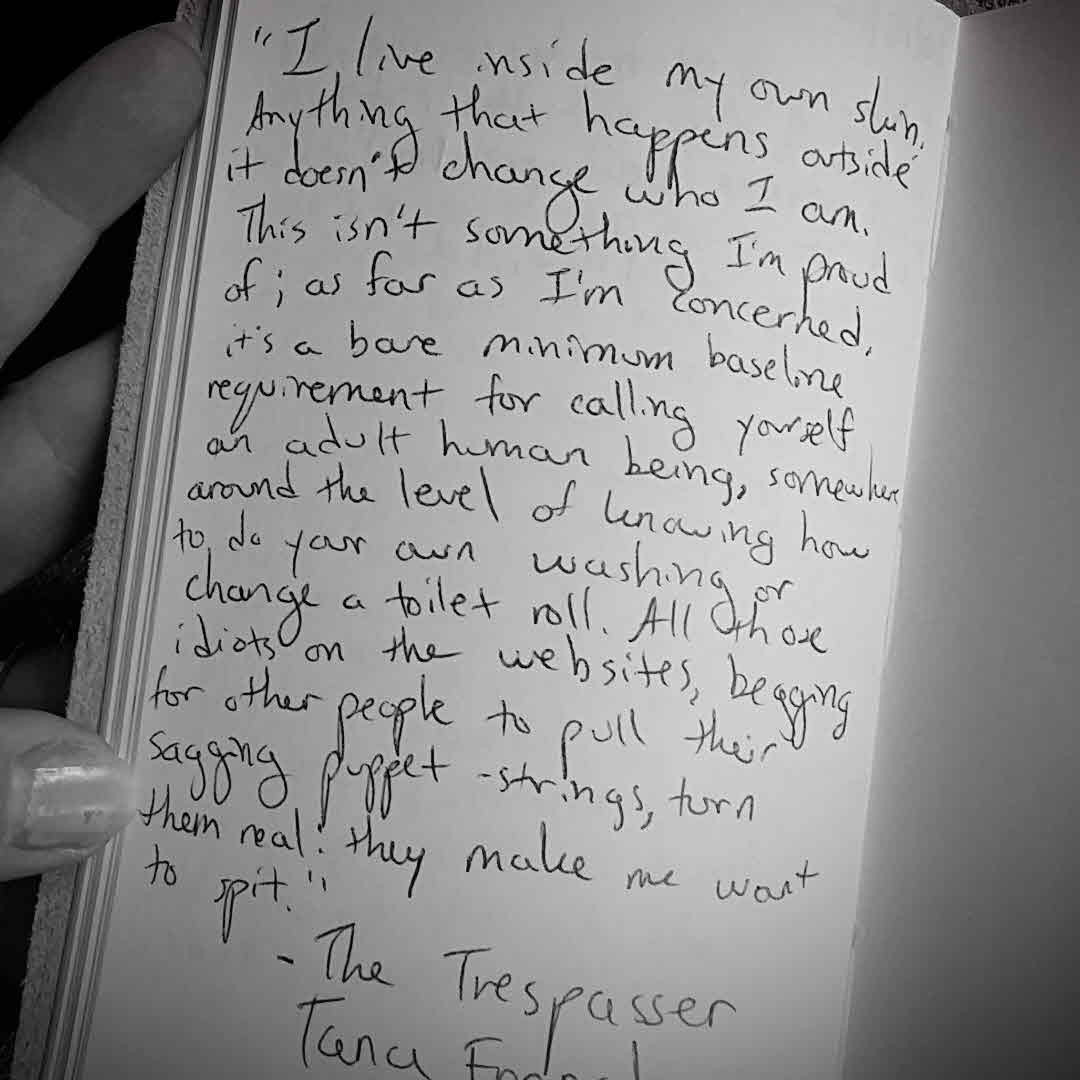 "I live inside my own skin.
Anything that happens outside
it doesn't change who I am.
This isn't something I'm proud
of; as far as I'm concerned,
it's a bare minimum baseline
requirement for calling yourself
an adult human being, somewhere
around the level of knowing how
to do your own washing or
change a toilet roll. All those
idiots on the websites, begging
for other people to pull their
sagging puppet-strings, turn
them real: they make me want
to spit."
- The Trespasser
Tana